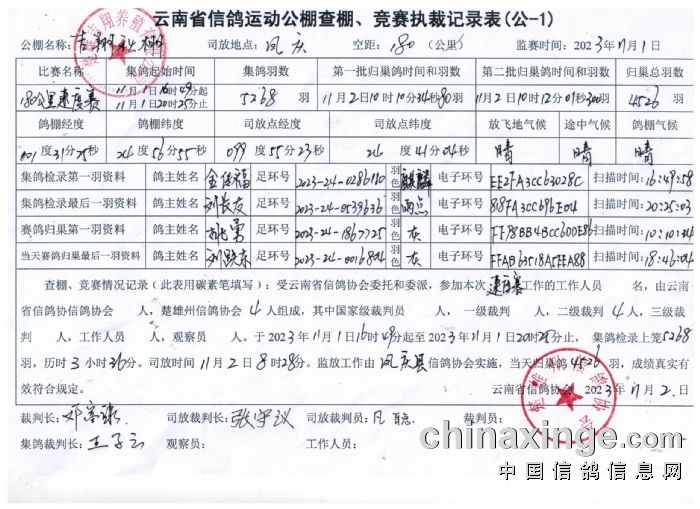 云南省信鸽运动公棚查棚、竞赛执裁记录表(公-1)
公棚名称: 吉翔秋棚 司放地点: 凤庆 空距: 180 (公里) 监赛时间: 2023年11月1日
比赛名称 集鸽起始时间 集鸽羽数 第一批归巢鸽时间和羽数 第二批归巢鸽时间和羽数 归巢总羽数
180公里速度赛 11月1日16时49分起 11月1日20时25分止 5268 羽 11月2日10时10分34秒80羽 11月2日10时12分01秒300羽 4526 羽
鸽棚经度 鸽棚纬度 司放点经度 司放点纬度 放飞地气候 途中气候 鸽棚气候
101度31分25秒 24度56分55秒 099度55分23秒 24度41分04秒 晴 晴 晴
集鸽检录第一羽资料 鸽主姓名 金佳福 足环号 2023-24-0286110 羽色 麒麟 电子环号 EE2FA3CC63028C 扫描时间: 16:49:58
集鸽检录最后一羽资料 鸽主姓名 刘长友 足环号 2023-24-0539636 羽色 雨点 电子环号 818FA3CC696E04 扫描时间: 20:25:03
赛鸽归巢第一羽资料 鸽主姓名 足环号 2023-24-1867725 羽色 灰 电子环号 FF78BB4BCC600E86 扫描时间: 10:10:34
当天赛鸽归巢最后一羽资料 鸽主姓名 刘跃东 足环号 2023-24-0016804 羽色 灰 电子环号 FFAB63518A5FEA88 扫描时间: 18:46:04
查棚、竞赛情况记录(此表用碳素笔填写): 受云南省信鸽协会委托和委派,参加本次 速度赛 工作的工作人员 名,由云南
省信鸽协信鸽协会 人,楚雄州信鸽协会 4 人组成,其中国家级裁判员 人,一级裁判 人,二级裁判 4 人,三级裁
判 人,工作人员 人,观察员 人。于2023年11月1日16时49分起至2023年11月1日20时25分止,集鸽检录上笼5268
羽,历时 3 小时 36分。司放时间 11 月 2 日 8 时 28分。监放工作由 凤庆县 信鸽协会实施,当天归巢鸽 4526 羽,成绩真实有
效符合规定。 云南省信鸽协会 2023年11月2日
裁判长: 邓富康 司放裁判长: 张宇议 司放裁判员: 裁判员:
集鸽裁判长: 王子云 观察员: 工作人员:
www.chinaxinge.com
中国信鸽信息网